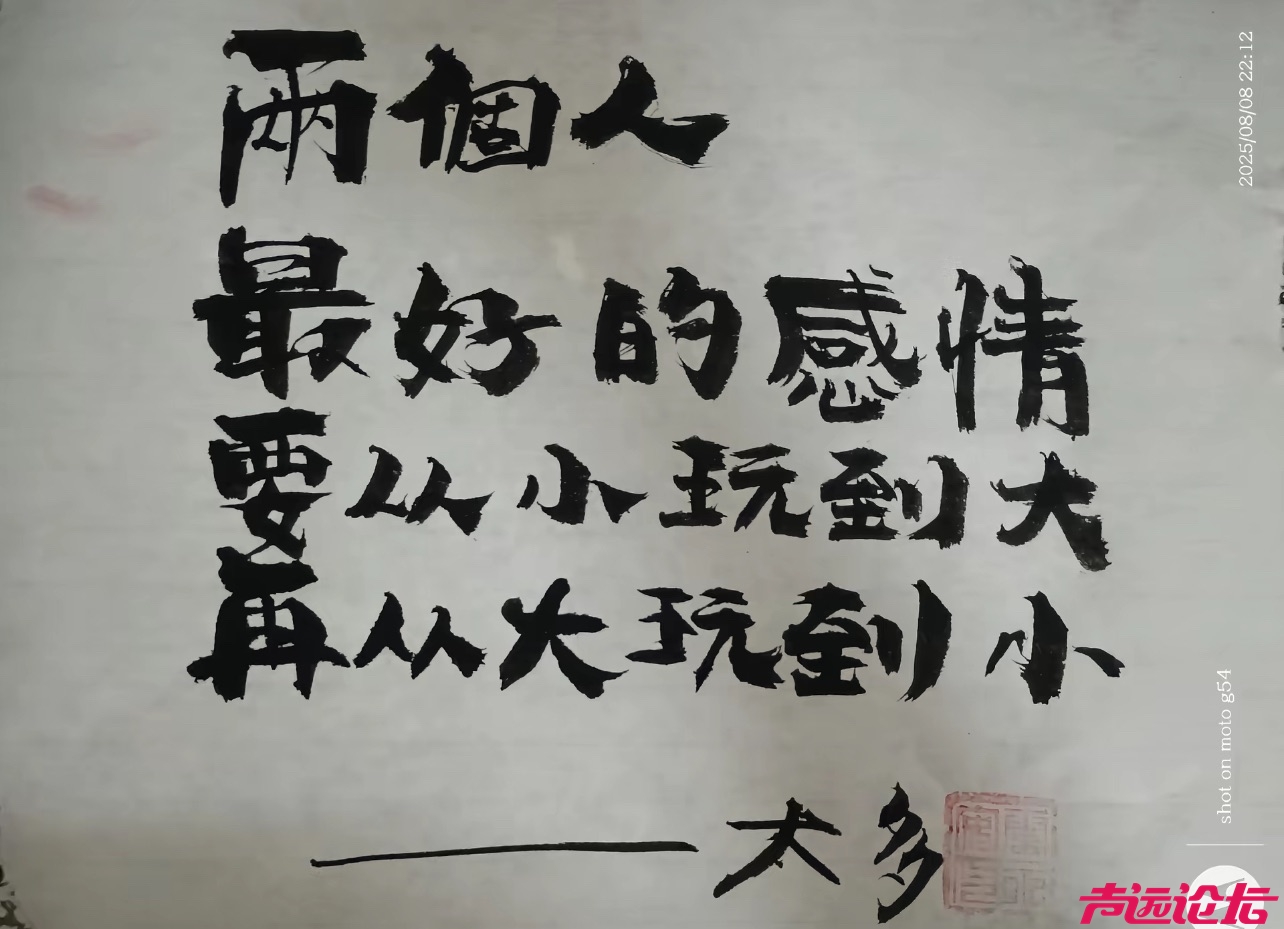 兩個人
最好的感情
要从小玩到大
再从大玩到小
——大多
2025/08/08 22:12
shot on moto g54
声远论坛